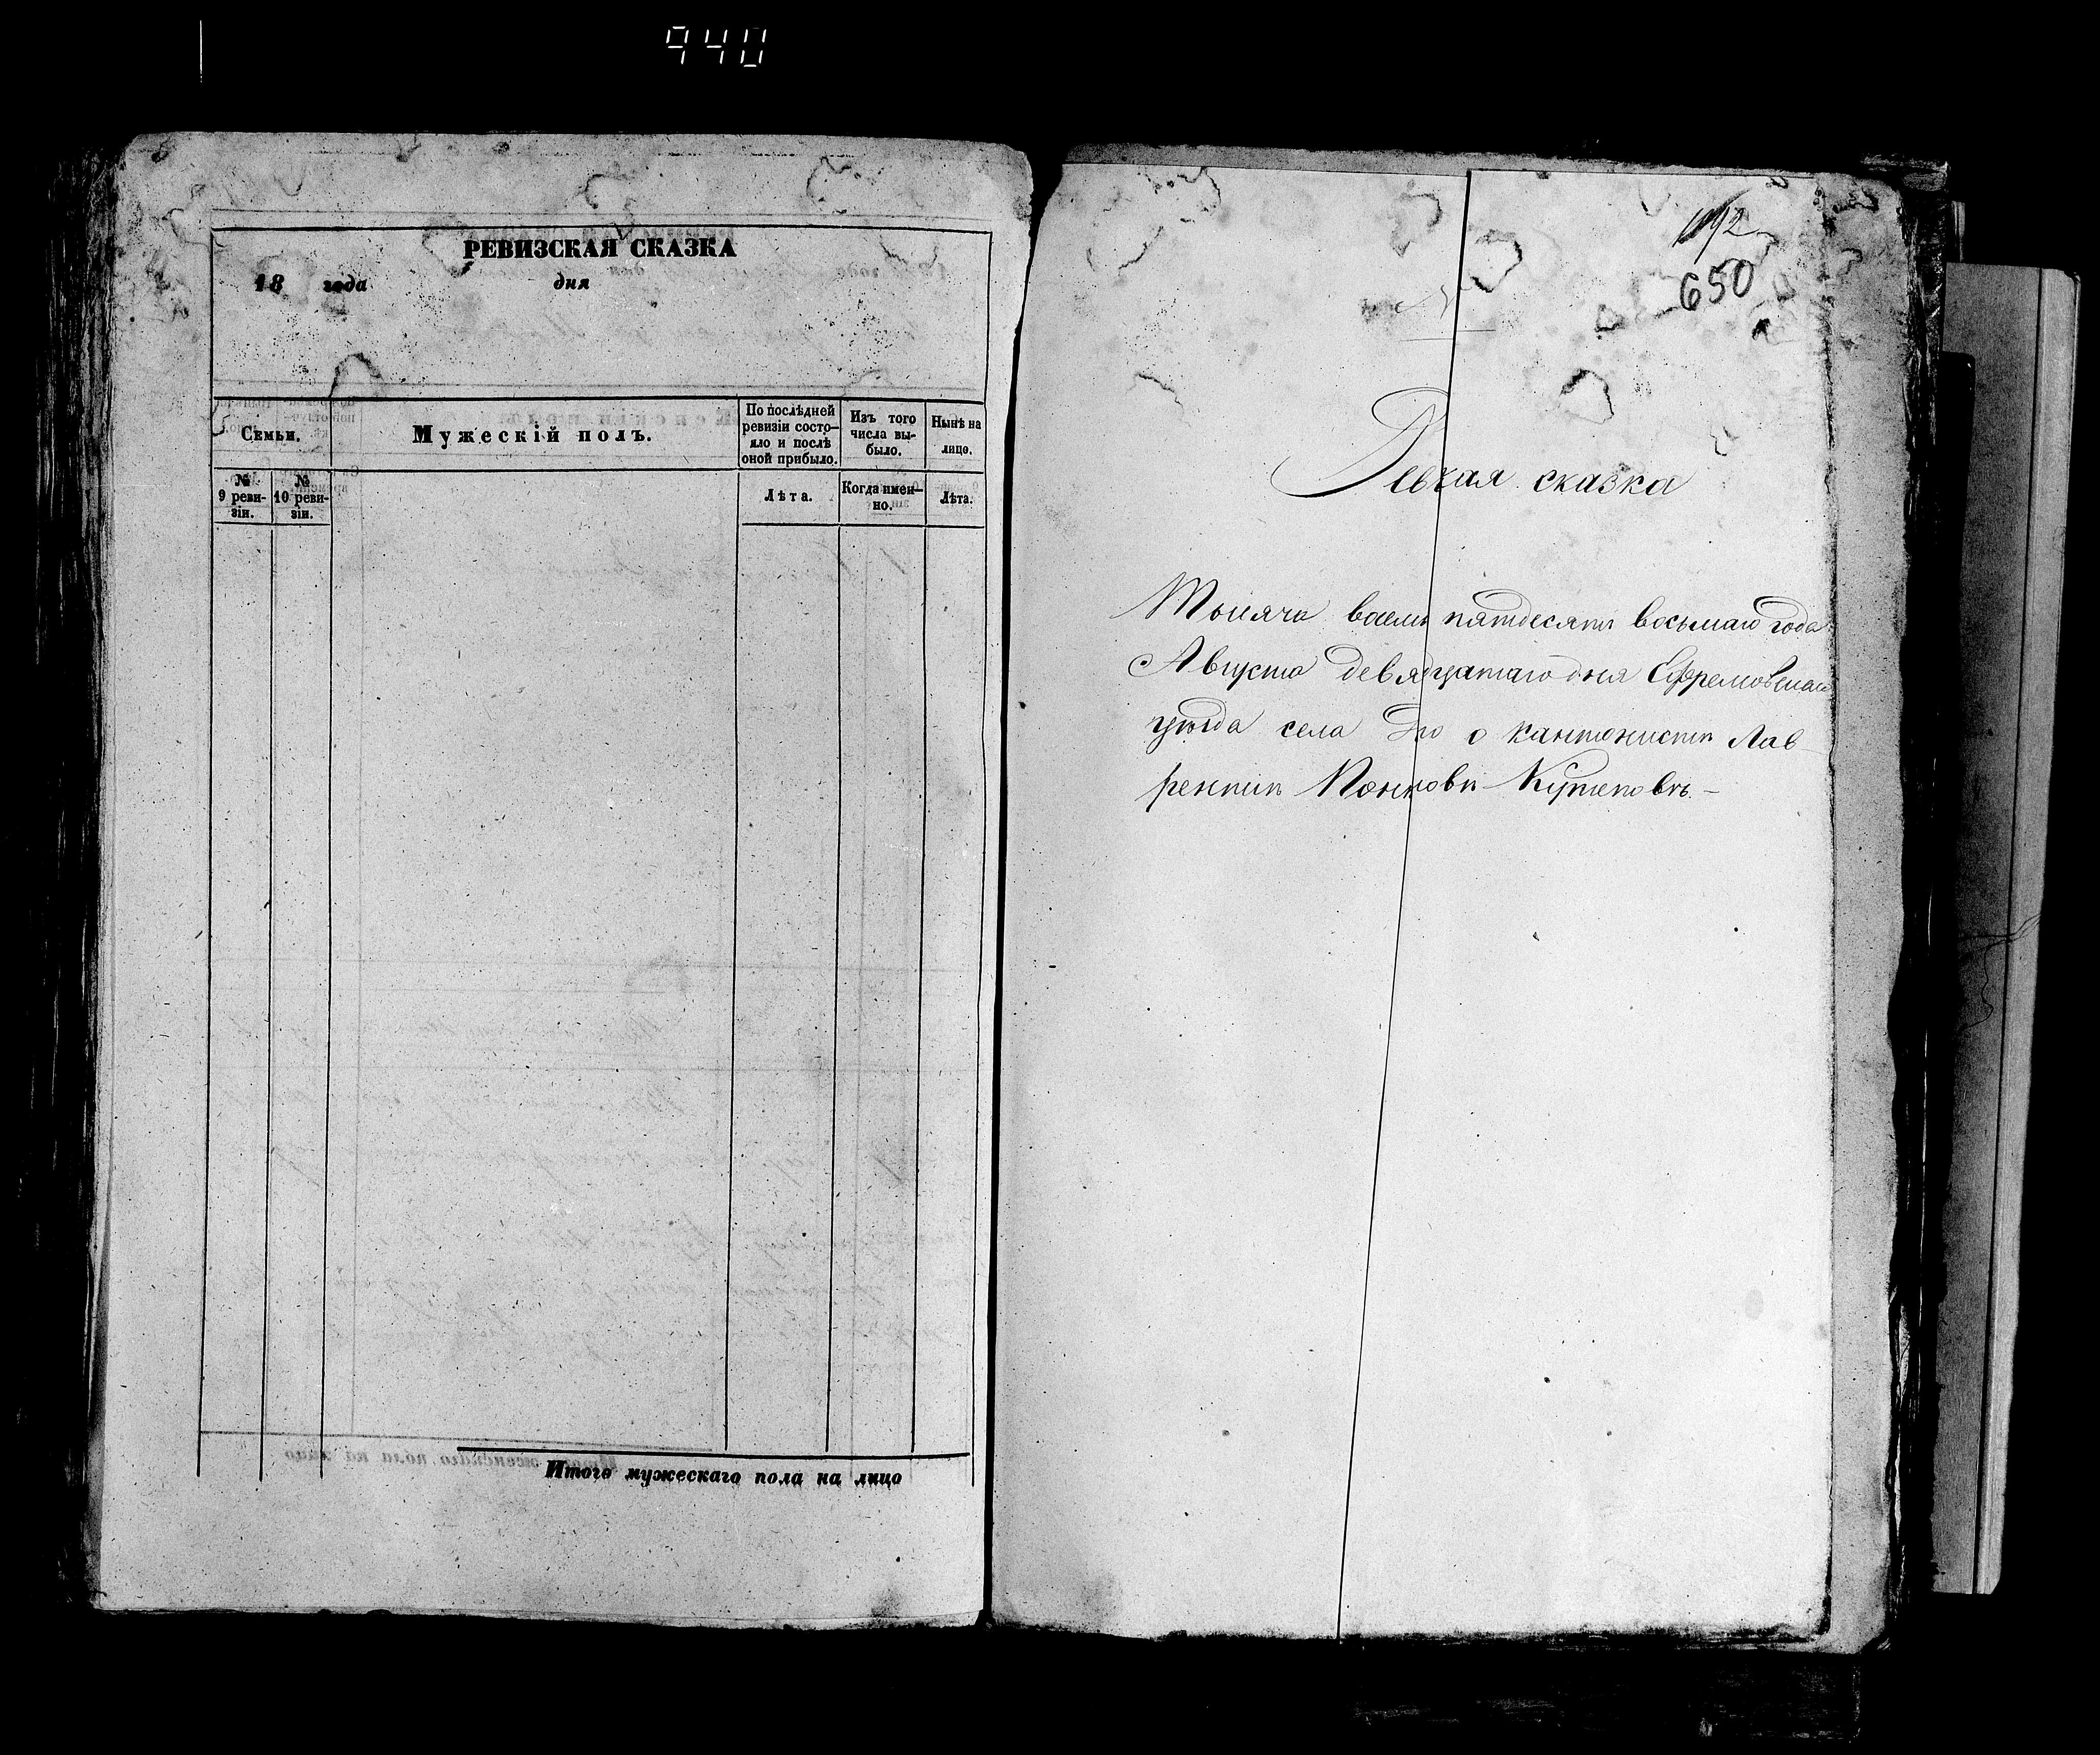 940
РЕВИЗСКАЯ СКАЗКА
18 года дня
Семьи.
Мужескій полъ.
По послѣдней
ревизіи состо-
яло и послѣ
оной прибыло.
Изъ того
числа вы-
было.
Нынѣ на
лицо.
№
9 реви-
зіи.
№
10 реви-
зіи.
Лѣта.
Когда имен-
но.
Лѣта.
Итого мужескаго пола на лицо
650
сказка
Тысяча восемь пятдесятъ восьмаго года
Августа дня Ефремовскаго
уѣзда села о кантонистѣ Лав-
рентиѣ Кутеповѣ.-